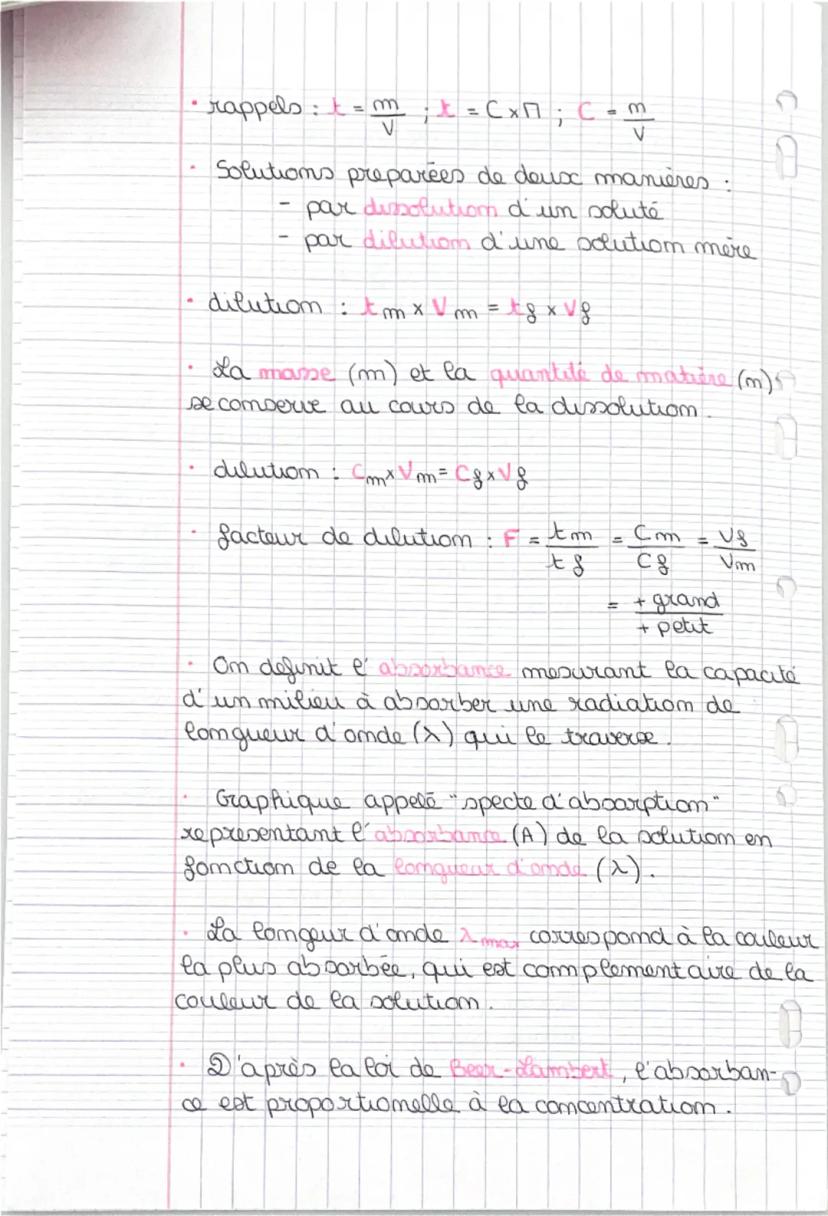 • rappels : t = m/V ; t = C x M ; C = n/V
• Solutions preparées de deux manières :
- par dissolution d'un soluté
- par dilution d'une solution mère
• dilution : tm x Vm = tf x Vf
• La masse (m) et la quantité de matière (n)
se conserve au cours de la dissolution.
• dilution : Cm x Vm = Cf x Vf
• facteur de dilution : F = tm/tf = Cm/Cf = Vf/Vm
= + grand / + petit
• On definit l'absorbance mesurant la capacité
d'un milieu à absorber une radiation de
longueur d'onde (λ) qui le traverse.
• Graphique appelé "specte d'absorption"
representant l'absorbance (A) de la solution en
fonction de la longueur d'onde (λ).
• La longeur d'onde λmax correspond à la couleur
la plus absorbée, qui est complementaire de la
couleur de la solution.
• D'après la loi de Beer-Lambert, l'absorban-
ce est proportionelle à la concentration.